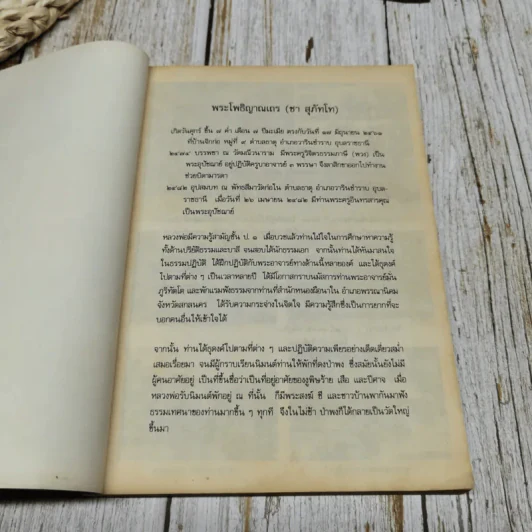 พระโพธิญาณเถร (ชา สุภัทโท)
เกิดวันศุกร์ ขึ้น ๗ ค่ำ เดือน ๗ ปีมะเมีย ตรงกับวันที่ ๑๗ มิถุนายน ๒๔๖๑
ที่บ้านจิกก่อ หมู่ที่ ๙ ตำบลธาตุ อำเภอวารินชำราบ อุบลราชธานี
๒๔๗๔ บรรพชา ณ วัดมณีวนาราม มีพระครูวิจิตรธรรมภาณี (พวง) เป็น
พระอุปัชฌาย์ อยู่ปฏิบัติครูบาอาจารย์ ๓ พรรษา จึงลาสิกขาออกไปทำงาน
ช่วยบิดามารดา
๒๔๘๒ อุปสมบท ณ พัทธสีมาวัดก่อใน ตำบลธาตุ อำเภอวารินชำราบ อุบล-
ราชธานี เมื่อวันที่ ๒๖ เมษายน ๒๔๘๒ มีท่านพระครูอินทรสารคุณ
เป็นพระอุปัชฌาย์
หลวงพ่อมีความรู้สามัญชั้น ป. ๑ เมื่อบวชแล้วท่านไม้ใจในการศึกษาหาความรู้
ทั้งด้านปริยัติธรรมและบาลี จนสอบได้นักธรรมเอก จากนั้นท่านได้หันมาสนใจ
ในธรรมปฏิบัติ ได้ฝึกปฏิบัติกับพระอาจารย์ทางด้านนี้หลายองค์ และได้ธุดงค์
ไปตามที่ต่าง ๆ เป็นเวลาหลายปี ได้มีโอกาสกราบนมัสการท่านพระอาจารย์มั่น
ภูริทัตโต และพักแรมฟังธรรมจากท่านที่สำนักหนองผือนาใน อำเภอพรรณานิคม
จังหวัดสกลนคร ได้รับความกระจ่างในจิตใจ มีความรู้สึกซึ่งเป็นการยากที่จะ
บอกคนอื่นให้เข้าใจได้
จากนั้น ท่านได้ธุดงค์ไปตามที่ต่าง ๆ และปฏิบัติความเพียรอย่างเด็ดเดี่ยวสม่ำ
เสมอเรื่อยมา จนมีผู้กราบเรียนนิมนต์ท่านให้พักที่ดงป่าพง ซึ่งสมัยนั้นยังไม่มี
ผู้คนอาศัยอยู่ เป็นที่ขึ้นชื่อว่าเป็นที่อยู่อาศัยของงูพิษร้าย เสือ และปีศาจ เมื่อ
หลวงพ่อรับนิมนต์พักอยู่ ณ ที่นั้น ก็มีพระสงฆ์ ชี และชาวบ้านพากันมาฟัง
ธรรมเทศนาของท่านมากขึ้น ๆ ทุกที จึงในไม่ช้า ป่าพงก็ได้กลายเป็นวัดใหญ่
ขึ้นมา